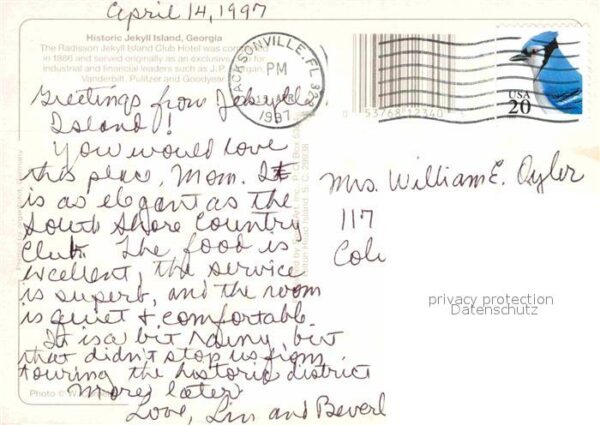 April 14, 1997
Historic Jekyll Island, Georgia
The Radisson Jekyll Island Club Hotel was con
in 1886 and served originally as an exclusive for
industrial and financial leaders such as J.P. organ,
Vanderbilt, Pulitzer and Goodyear
JACKSONVILLE, FL 322
PM
1997
USA
20
0 53768 12340
Greetings from Jekyll
Island!
You would love
this place, Mom. It
is as elegant as the
South Shore Country
Club. The food is
excellent, the service
is superb, and the room
is quiet & comfortable.
It is a bit rainy, but
that didn't stop us from
touring the historic district
More later
Love, Lin and Beverl
Mrs. William E. Oyler
117
Col
privacy protection
Datenschutz
Photo © W